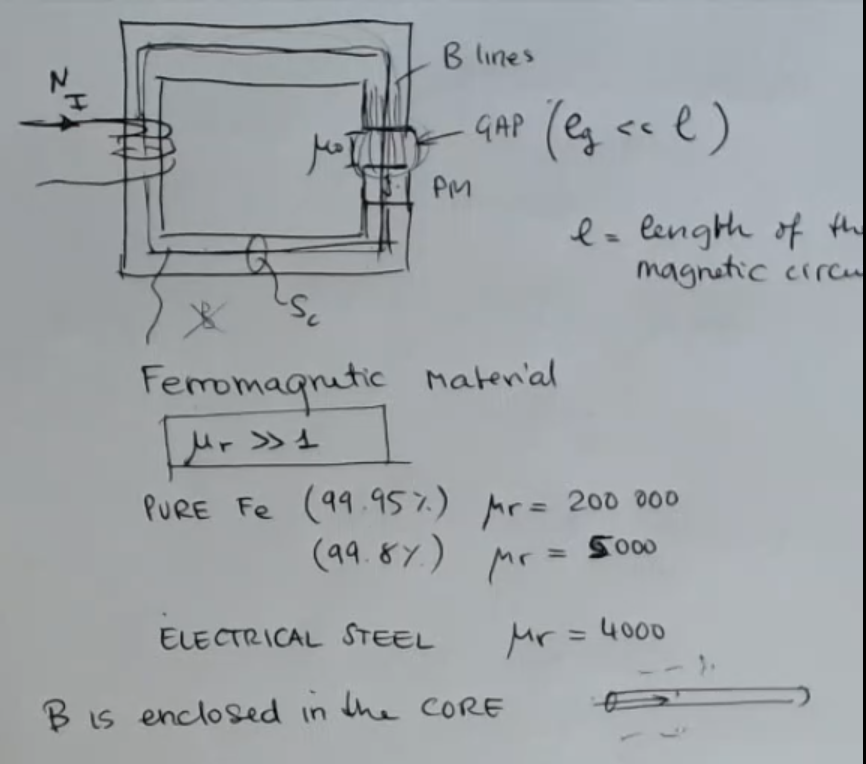 N
I
B lines
GAP (lg << l)
μ0
PM
l = length of the
magnetic circu
Sc
B
Ferromagnetic material
μr >> 1
PURE Fe (99.95%) μr = 200 000
(99.8%) μr = 5000
ELECTRICAL STEEL μr = 4000
B is enclosed in the CORE